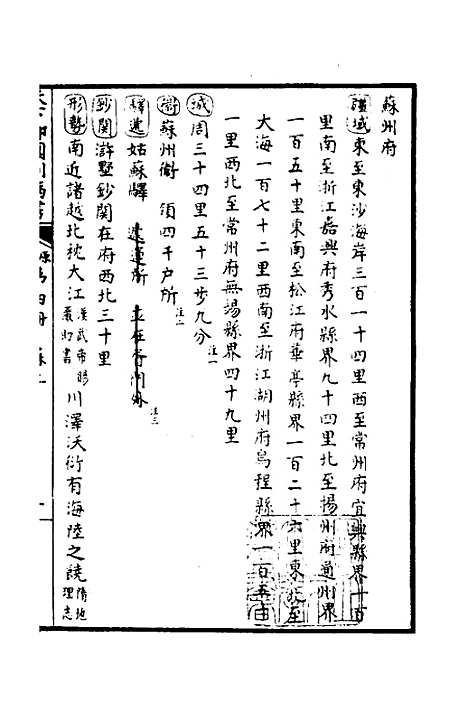 蘇州府
疆域東至東沙海岸三百一十四里西至常州府宜興縣界一百
里南至浙江嘉興府秀水縣界九十四里北至揚州府通州界
一百五十里東南至松江府華亭縣界一百二十六里東北至
大海一百七十二里西南至浙江湖州府烏程縣界一百五十
一里西北至常州府無錫縣界四十九里
城周三十四里五十三步九分 注一
衛蘇州衛 領四千户所 注二
驛遞姑蘇驛 遞運所 並在胥門外 注三
鈔関滸墅鈔関在府西北三十里
形勢南近諸越北枕大江漢武帝賜嚴助書川澤沃衍有海陸之饒隋地理志